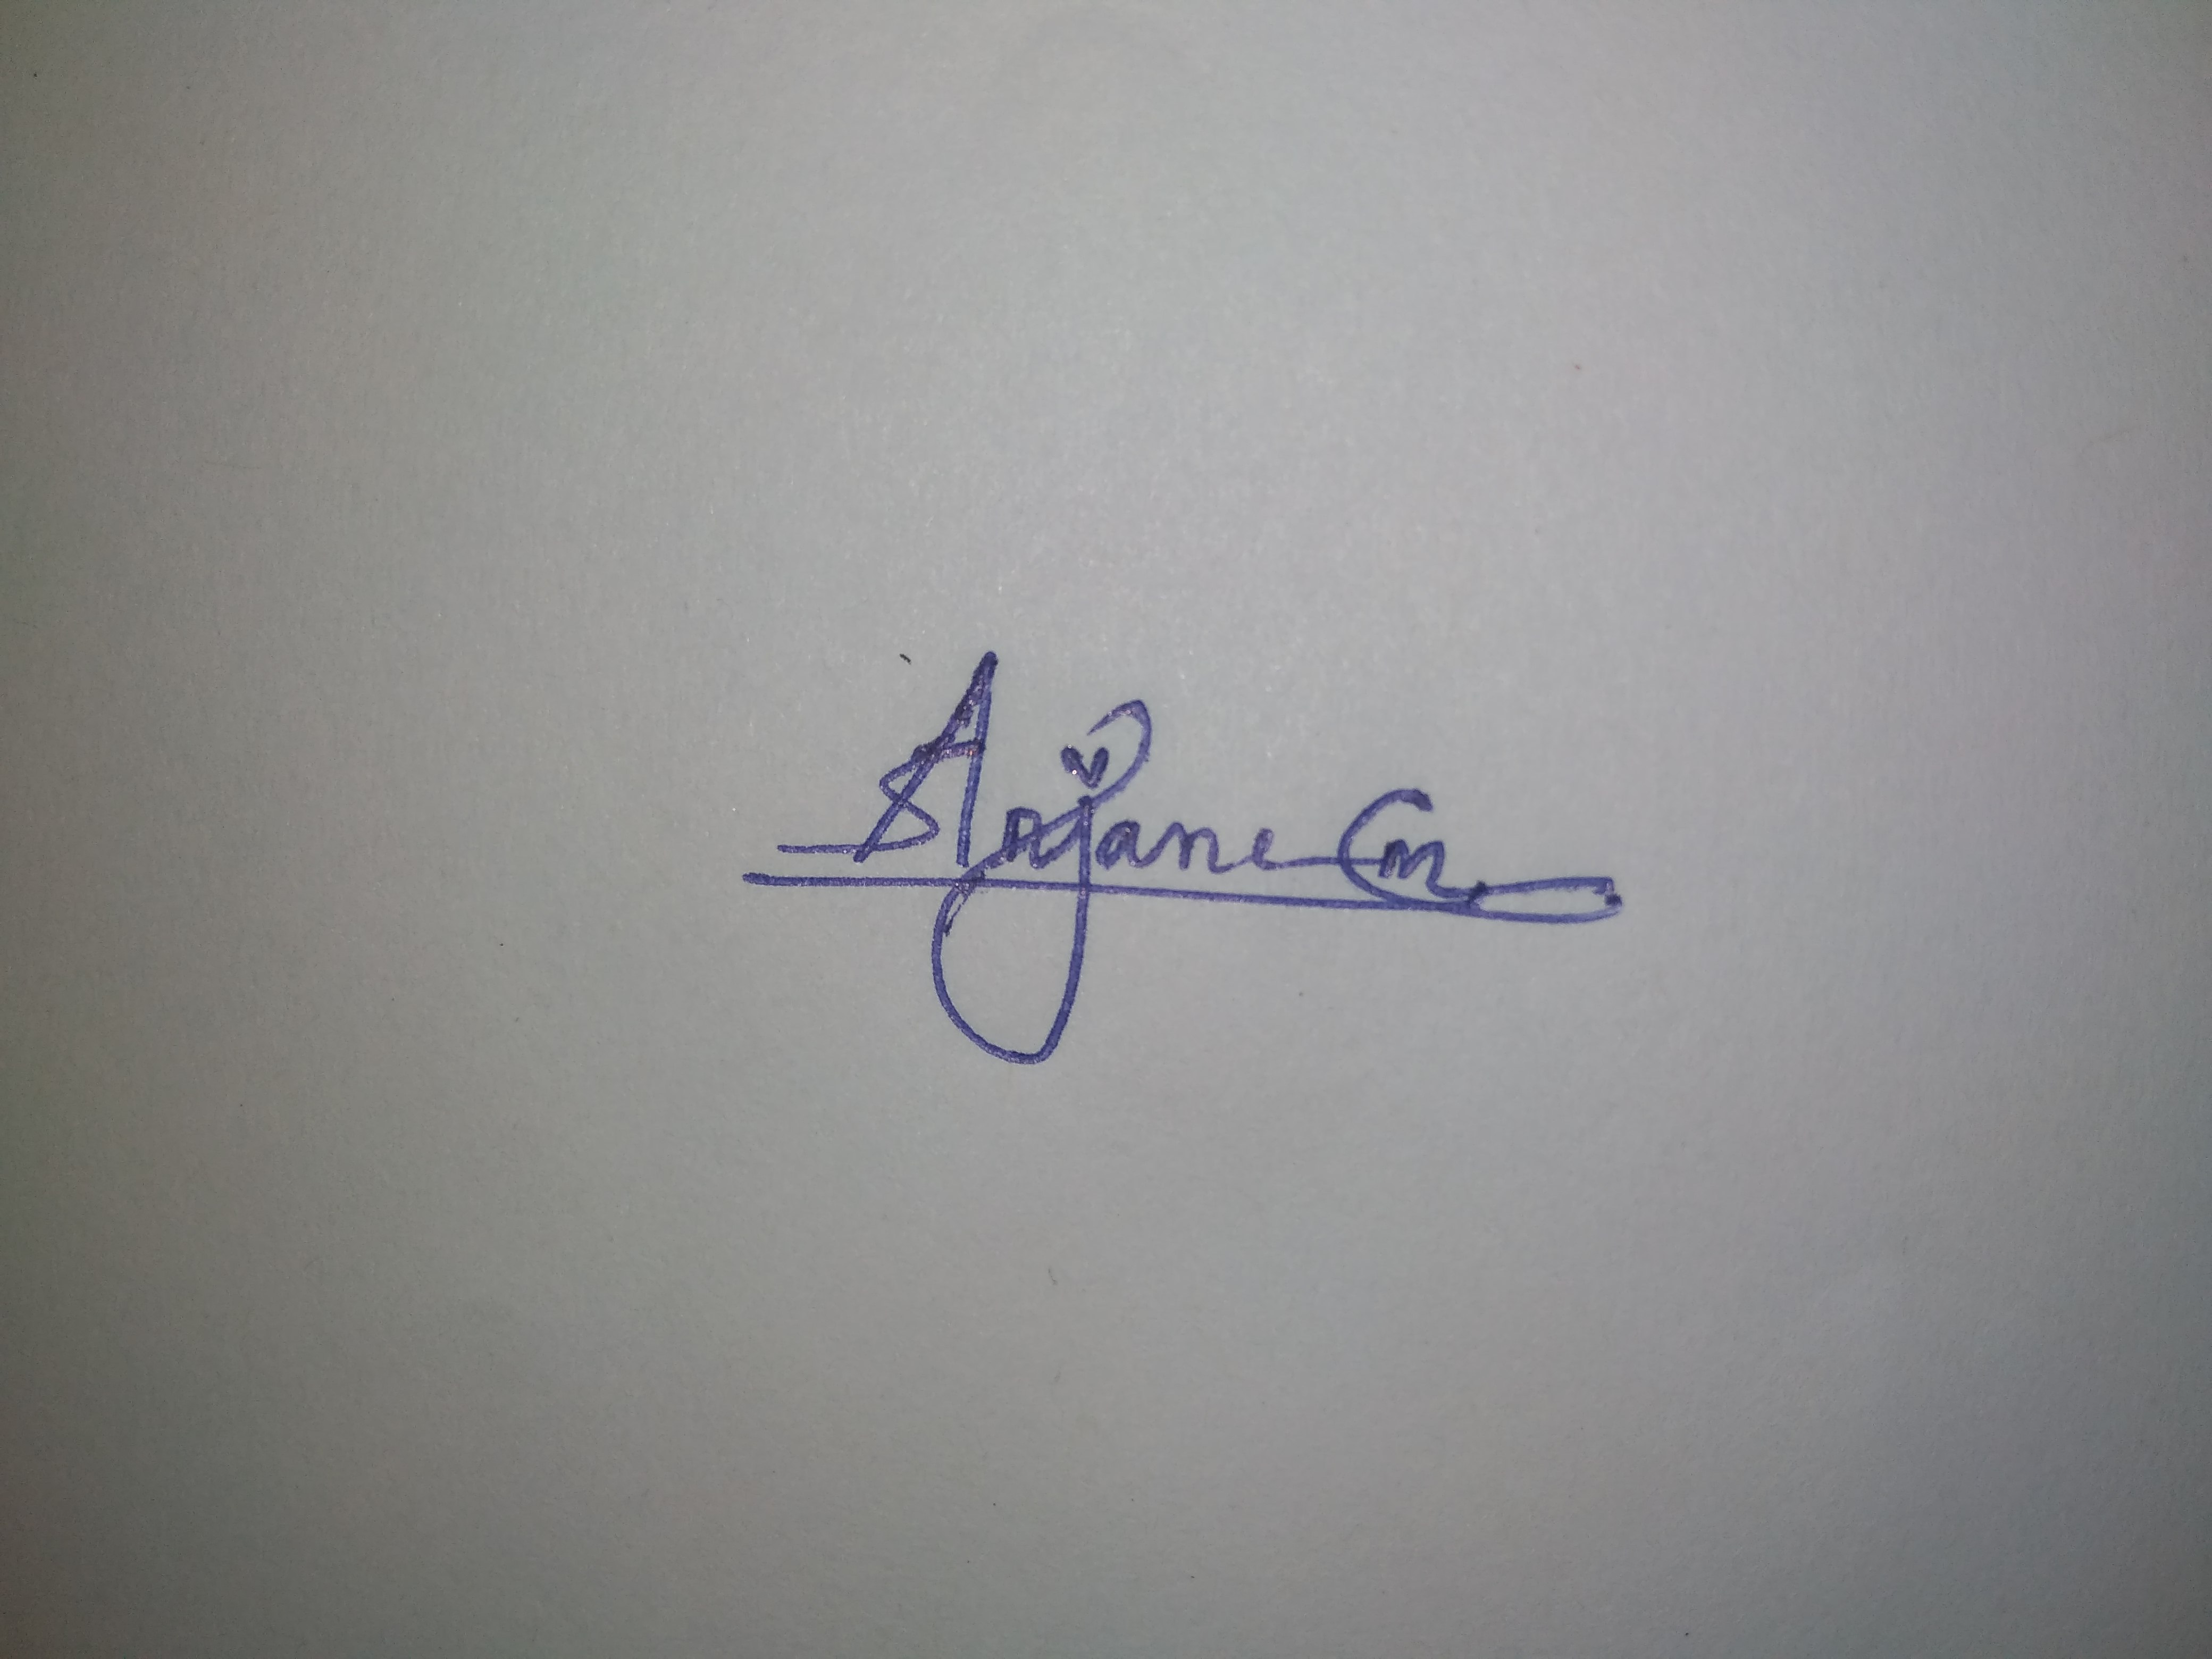 Anjane Cm